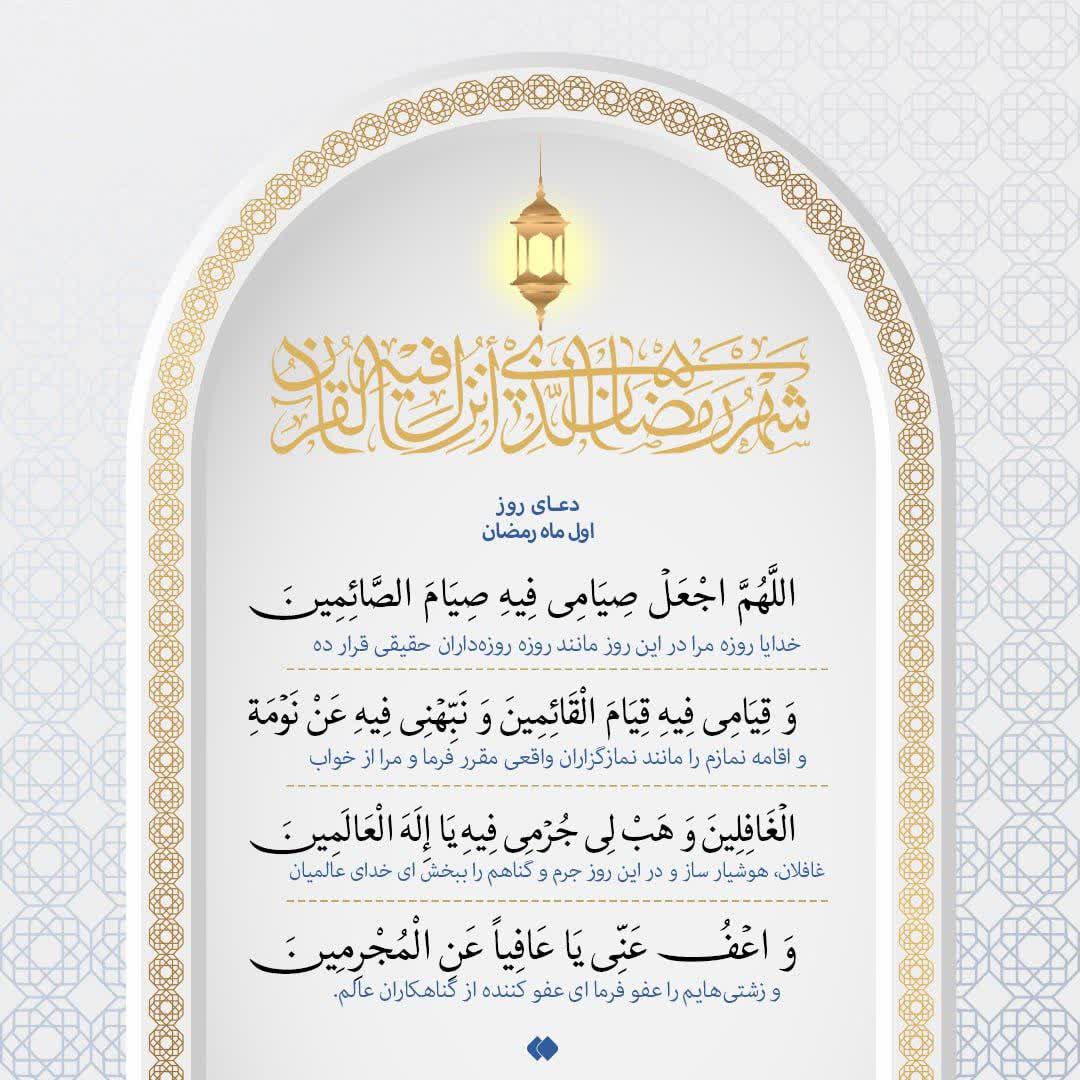 شَهْرُ رَمَضَانَ الَّذِي أُنْزِلَ فِيهِ الْقُرْآنُ
دعای روز
اول ماه رمضان
اللَّهُمَّ اجْعَلْ صِيَامِی فِيهِ صِيَامَ الصَّائِمِينَ
خدایا روزه مرا در این روز مانند روزه روزه‌داران حقیقی قرار ده
وَ قِيَامِی فِيهِ قِيَامَ الْقَائِمِينَ وَ نَبِّهْنِی فِيهِ عَنْ نَوْمَةِ
و اقامه نمازم را مانند نمازگزاران واقعی مقرر فرما و مرا از خواب
الْغَافِلِينَ وَ هَبْ لِی جُرْمِی فِيهِ يَا إِلَهَ الْعَالَمِينَ
غافلان، هوشیار ساز و در این روز جرم و گناهم را ببخش ای خدای عالمیان
وَ اعْفُ عَنِّی يَا عَافِياً عَنِ الْمُجْرِمِينَ
و زشتی‌هایم را عفو فرما ای عفو کننده از گناهکاران عالم.